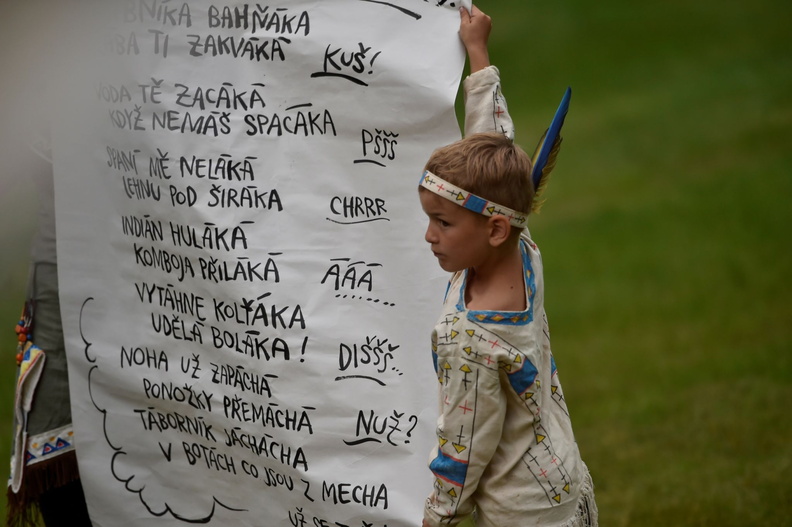 BAHŇÁKA
TI ZAKVÁKÁ
KUŠ!
TĚ ZACÁKÁ
KDYŽ NEMÁŠ SPACÁKA
PŠŠŠ
SPANÍ MĚ NELÁKÁ
LEHNU POD ŠIRÁKA
CHRRR
INDIÁN HULÁKÁ
KOMBOJA PŘILÁKÁ
ÁÁÁ
VYTÁHNE KOLŤÁKA
UDĚLÁ BOLÁKA!
DIŠŠŠ
NOHA UŽ ZAPÁCHÁ
PONOŽKY PŘEMÁCHÁ
NUŽ?
TÁBORNÍK JÁCHÁCHÁ
V BOTÁCH CO JSOU Z MECHA
UŽ SE